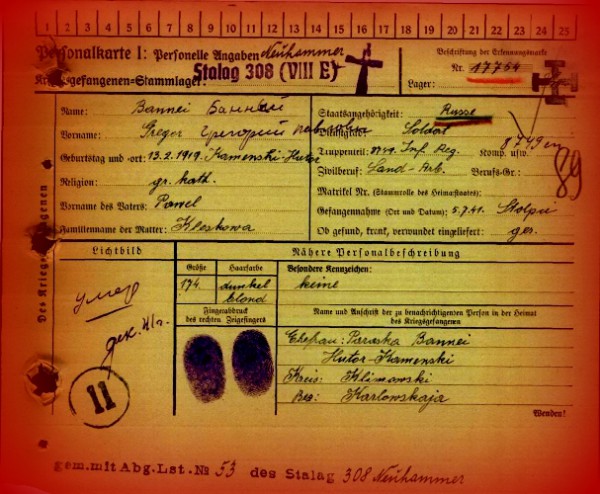 1 2 3 4 5 6 7 8 9 10 11 12 13 14 15 16 17 18 19 20 21 22 23 24 25
Personalkarte I: Personelle Angaben
Neuhammer
Kriegsgefangenen-Stammlager: Stalag 308 (VIII E)
Beschriftung der Erkennungsmarke
Nr. 17754
Lager:
Des Kriegsgefangenen
Name: Bannei Банный
Vorname: Gregor Григорий
Geburtstag und -ort: 13.2.1919. Kamenski-Hutor
Religion: gr. kath.
Vorname des Vaters: Pawel
Familienname der Mutter: Kleskowa
Staatsangehörigkeit: Russe
Soldat
Truppenteil: 8749. Inf. Reg. Komp. usw.
Zivilberuf: Land-Arb. Berufs-Gr.:
Matrikel Nr. (Stammrolle des Heimatstaates):
Gefangennahme (Ort und Datum): 5.7.41. Stolpii
Ob gesund, krank, verwundet eingeliefert: ges.
89
Lichtbild
умер
11
Nähere Personalbeschreibung
Größe
Haarfarbe
Besondere Kennzeichen:
174.
dunkel
blond
keine
Fingerabdruck
des rechten Zeigefingers
Name und Anschrift der zu benachrichtigenden Person in der Heimat
des Kriegsgefangenen
Ehefrau: Paraska Bannei
Hutor-Kamenski
Kreis: Klimowski
Karlowskaja
Wenden!
gem. mit Abg. Lst. № 53 des Stalag 308 Neuhammer